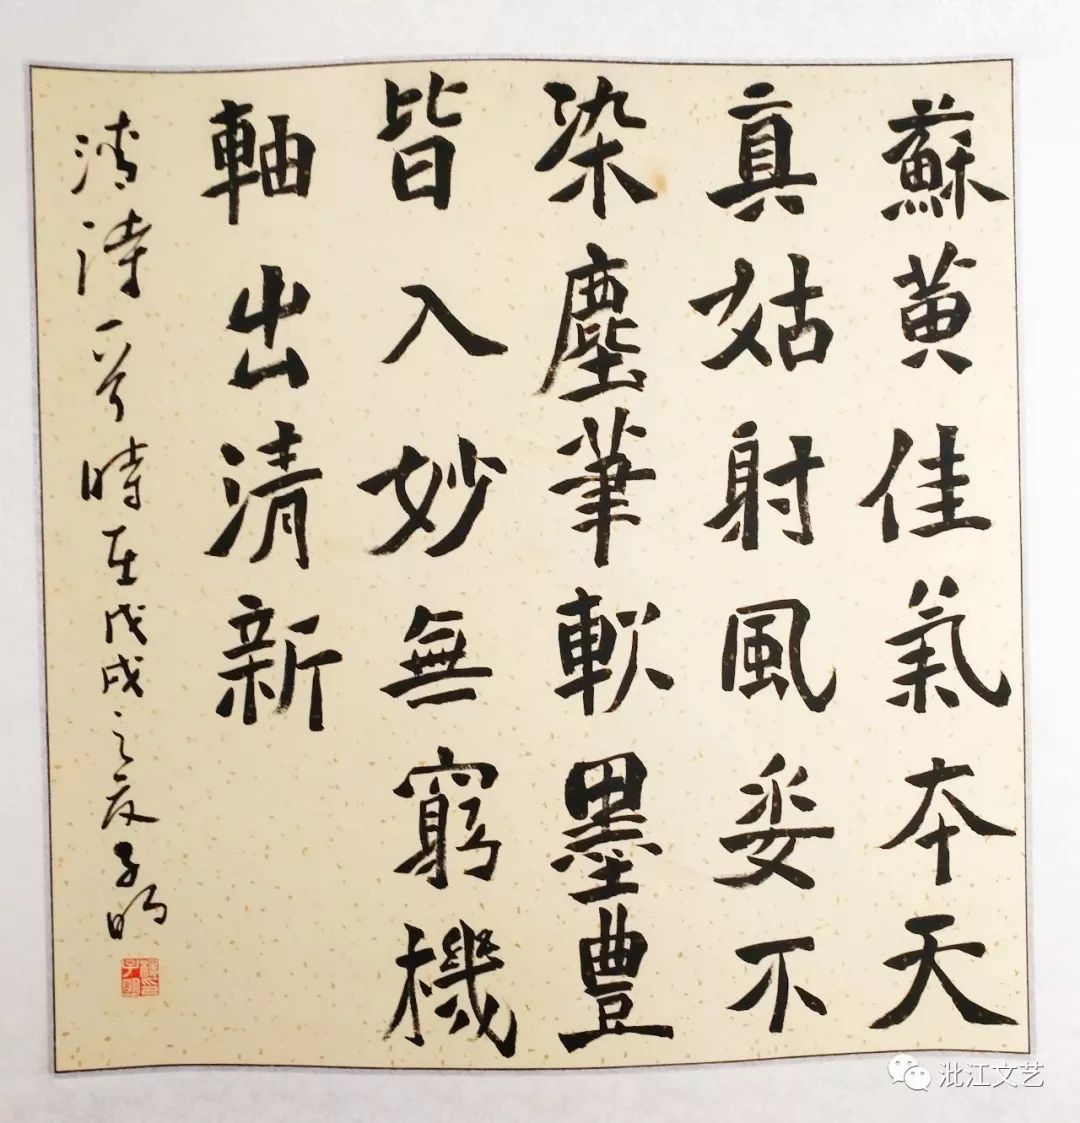 蘇黄佳氣本天
真姑射風姿不
染塵筆軟墨豐
皆入妙無窮機
軸出清新
清詩一首時在戊戌之夏子明
沘江文艺